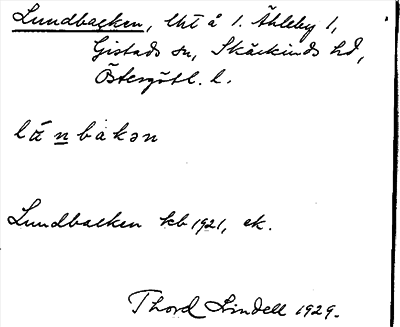 Lundbacken, lht å 1. Åhleby 1,
Gistads sn, Skärkinds hd,
Östergötl. l.
lá̄n bakən
Lundbacken kb 1921, ek.
Thord Lindell 1929.